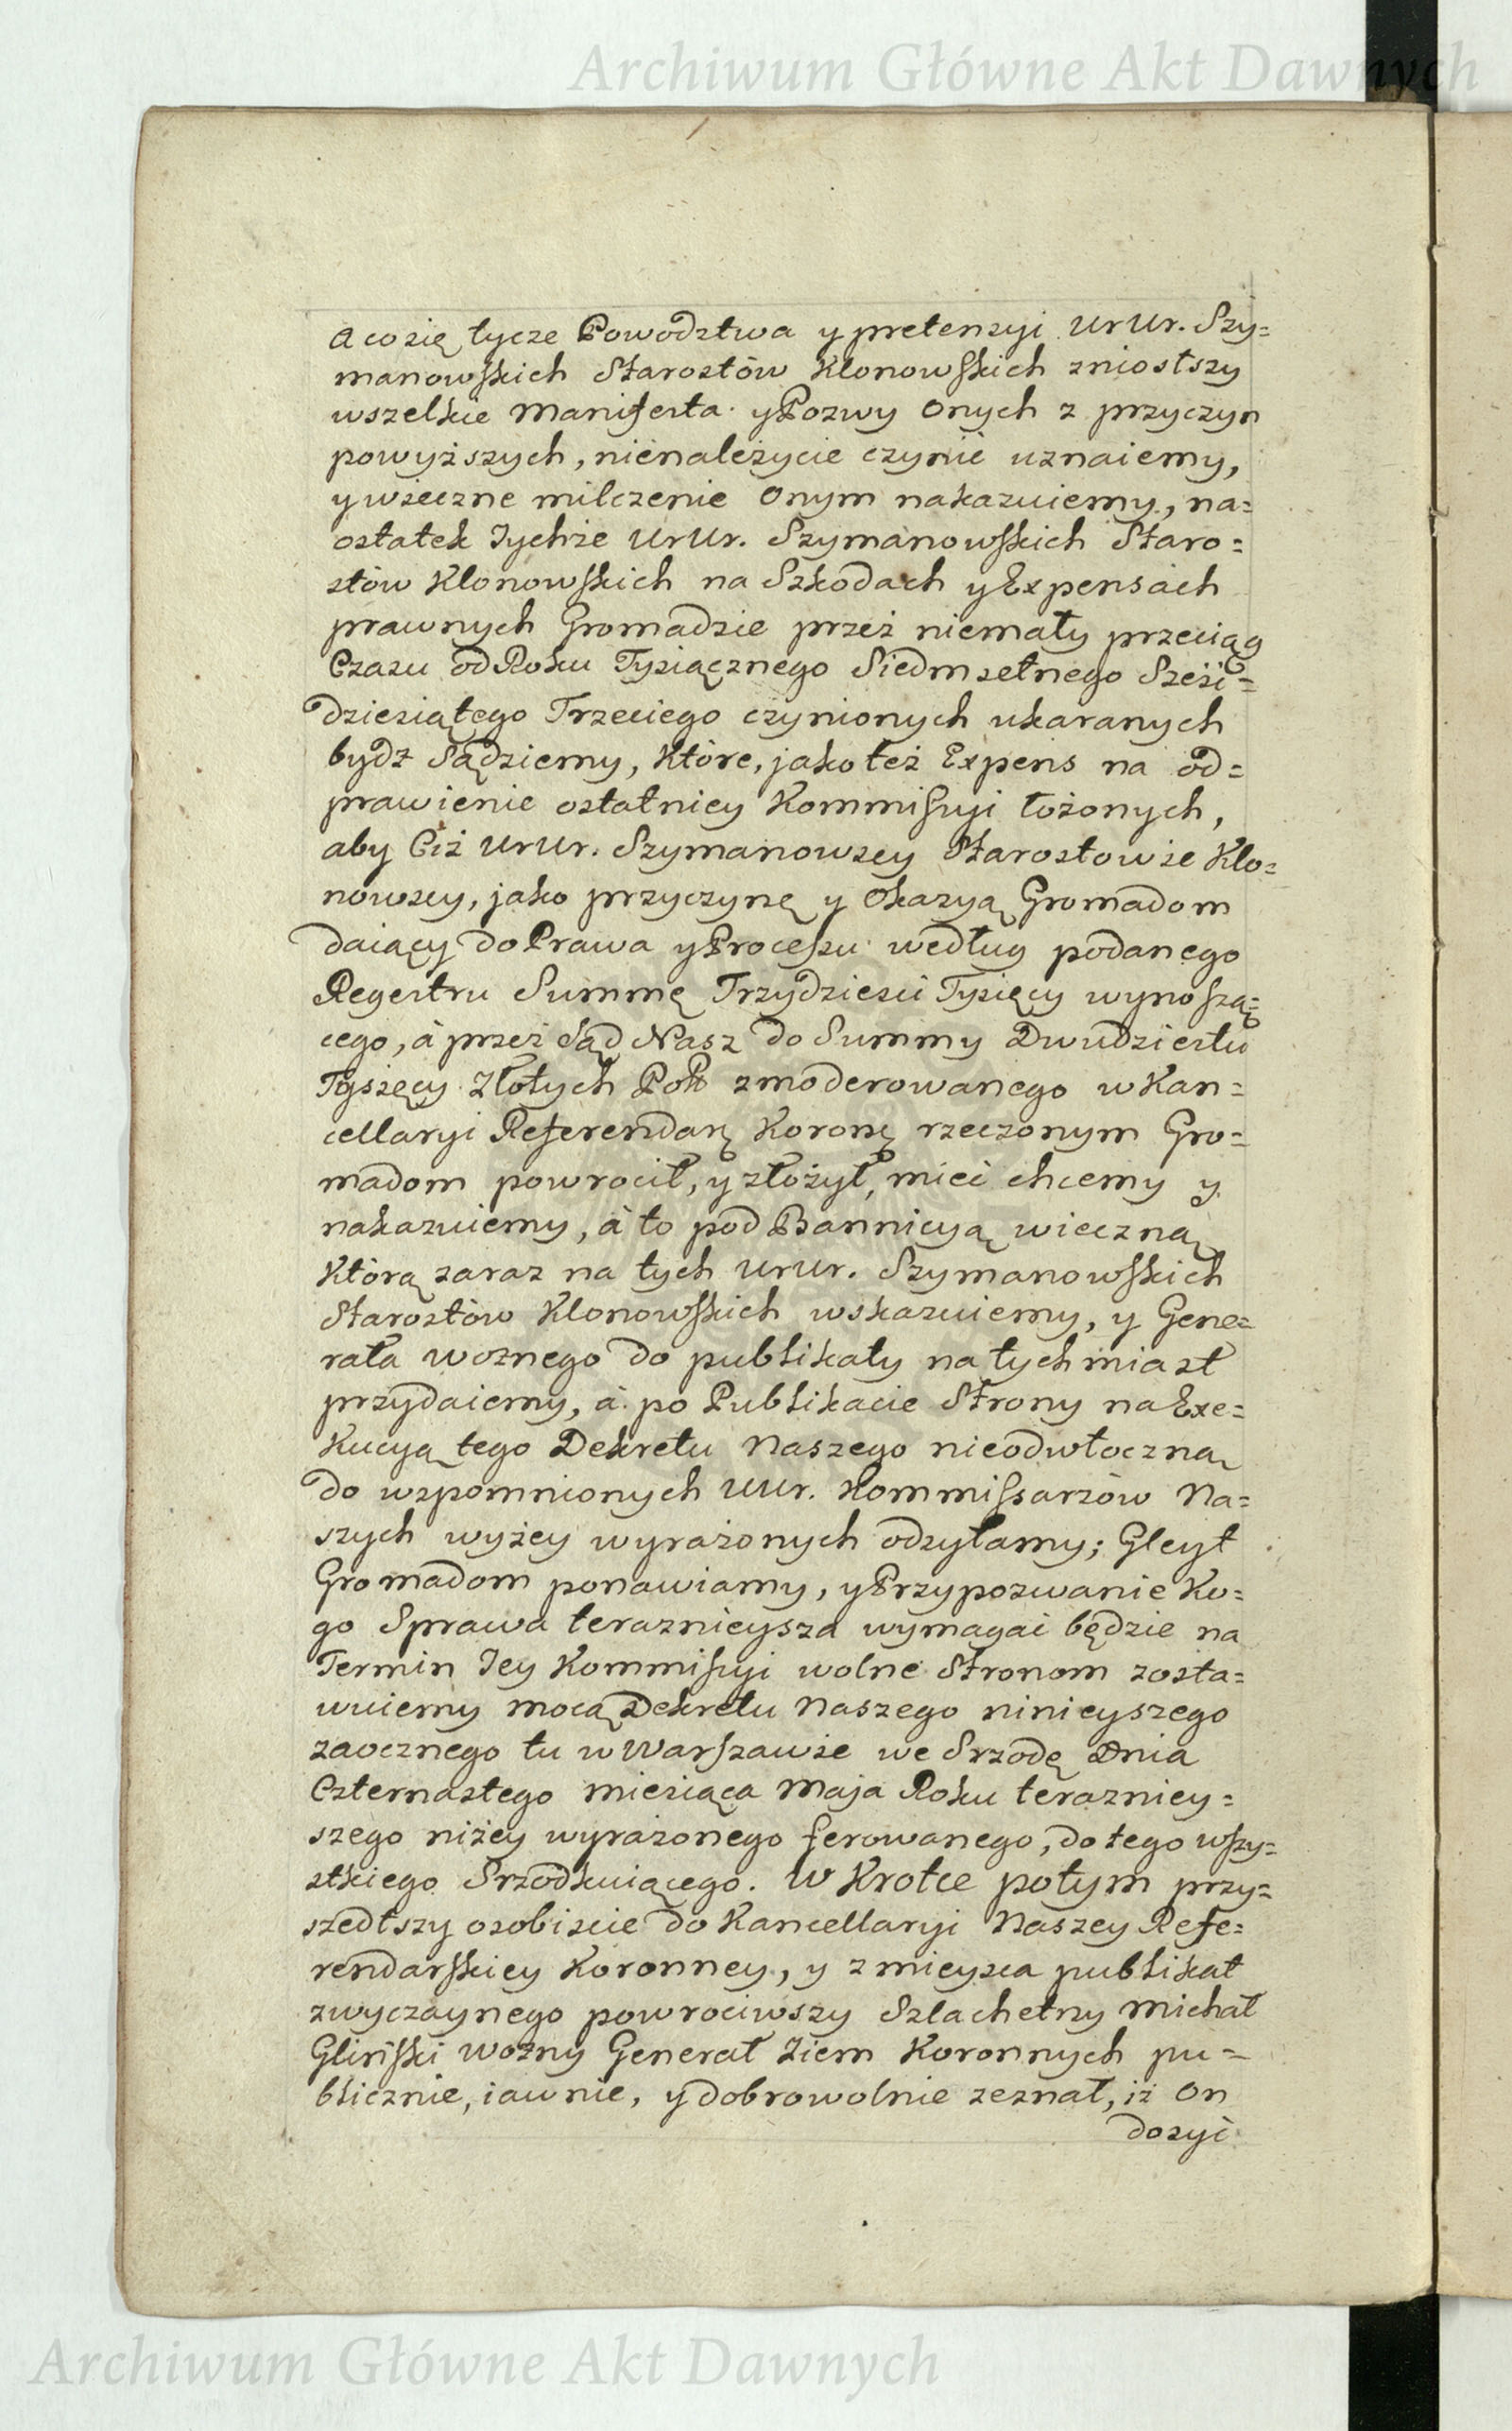 Archiwum Główne Akt Dawnych
A co się tycze Powodztwa y pretensyi UrUr. Szy=
manowskich Starostów Klonowskich zniosłszy
wszelkie Manifesta y Pozwy Onych z przyczyn
powyższych, nienależycie czynić uznaiemy,
y wieczne milczenie Onym nakazuiemy, na=
ostatek Tychże UrUr. Szymanowskich Staro=
stów Klonowskich na Szkodach y Expensach
prawnych Gromadzie przez niemały przeciąg
Czasu od Roku Tysiącznego Siedmsetnego Sześć=
dziesiątego Trzeciego czynionych ukaranych
bydz Sądziemy, które, jako też Expens na od=
prawienie ostatniey Kommissyi łożonych,
aby Ciż UrUr. Szymanowscy Starostowie Klo=
nowscy, jako przyczynę y Okazyą Gromadom
daiący do Prawa y Processu według podanego
Regestru Summę Trzydzieści Tysięcy wynoszą=
cego, á przez Sąd Nasz do Summy Dwudziestu
Tysięcy Złotych Pol: zmoderowanego w Kan=
cellaryi Referendarę Koronę rzeczonym Gro=
madom powrócił, y złożył, mieć chcemy y
nakazuiemy, á to pod Bannicyą wieczną
którą zaraz na tych UrUr. Szymanowskich
Starostów Klonowskich wskazuiemy, y Gene=
rała Woznego do publikaty natychmiast
przydaiemy, á po Publikacie Strony na Exe=
kucyą tego Dekretu Naszego nieodwłoczną
do wspomnionych UUr. Kommissarzów Na=
szych wyżey wyrażonych odsyłamy; Gleyt
Gromadom ponawiamy, y Przypozwanie Ko=
go Sprawa terazniejsza wymagać będzie na
Termin Jey Kommissyi wolne Stronom zosta=
wuiemy mocą Dekretu Naszego ninieyszego
zaocznego tu w Warszawie we Srzodę Dnia
Czternastego Miesiąca Maja Roku terazniey=
szego niżey wyrażonego ferowanego, do tego wszy=
stkiego Srzodkuiącego. W Krotce potym przy=
szedłszy osobiscie do Kancellaryi Naszey Refe=
rendarskiey Koronney, y z mieysca publikat
zwyczaynego powrociwszy Szlachetny Michał
Gliński Wozny Generał Ziem Koronnych pu=
blicznie, iawnie, y dobrowolnie zeznał, iż On
dosyć
Archiwum Główne Akt Dawnych